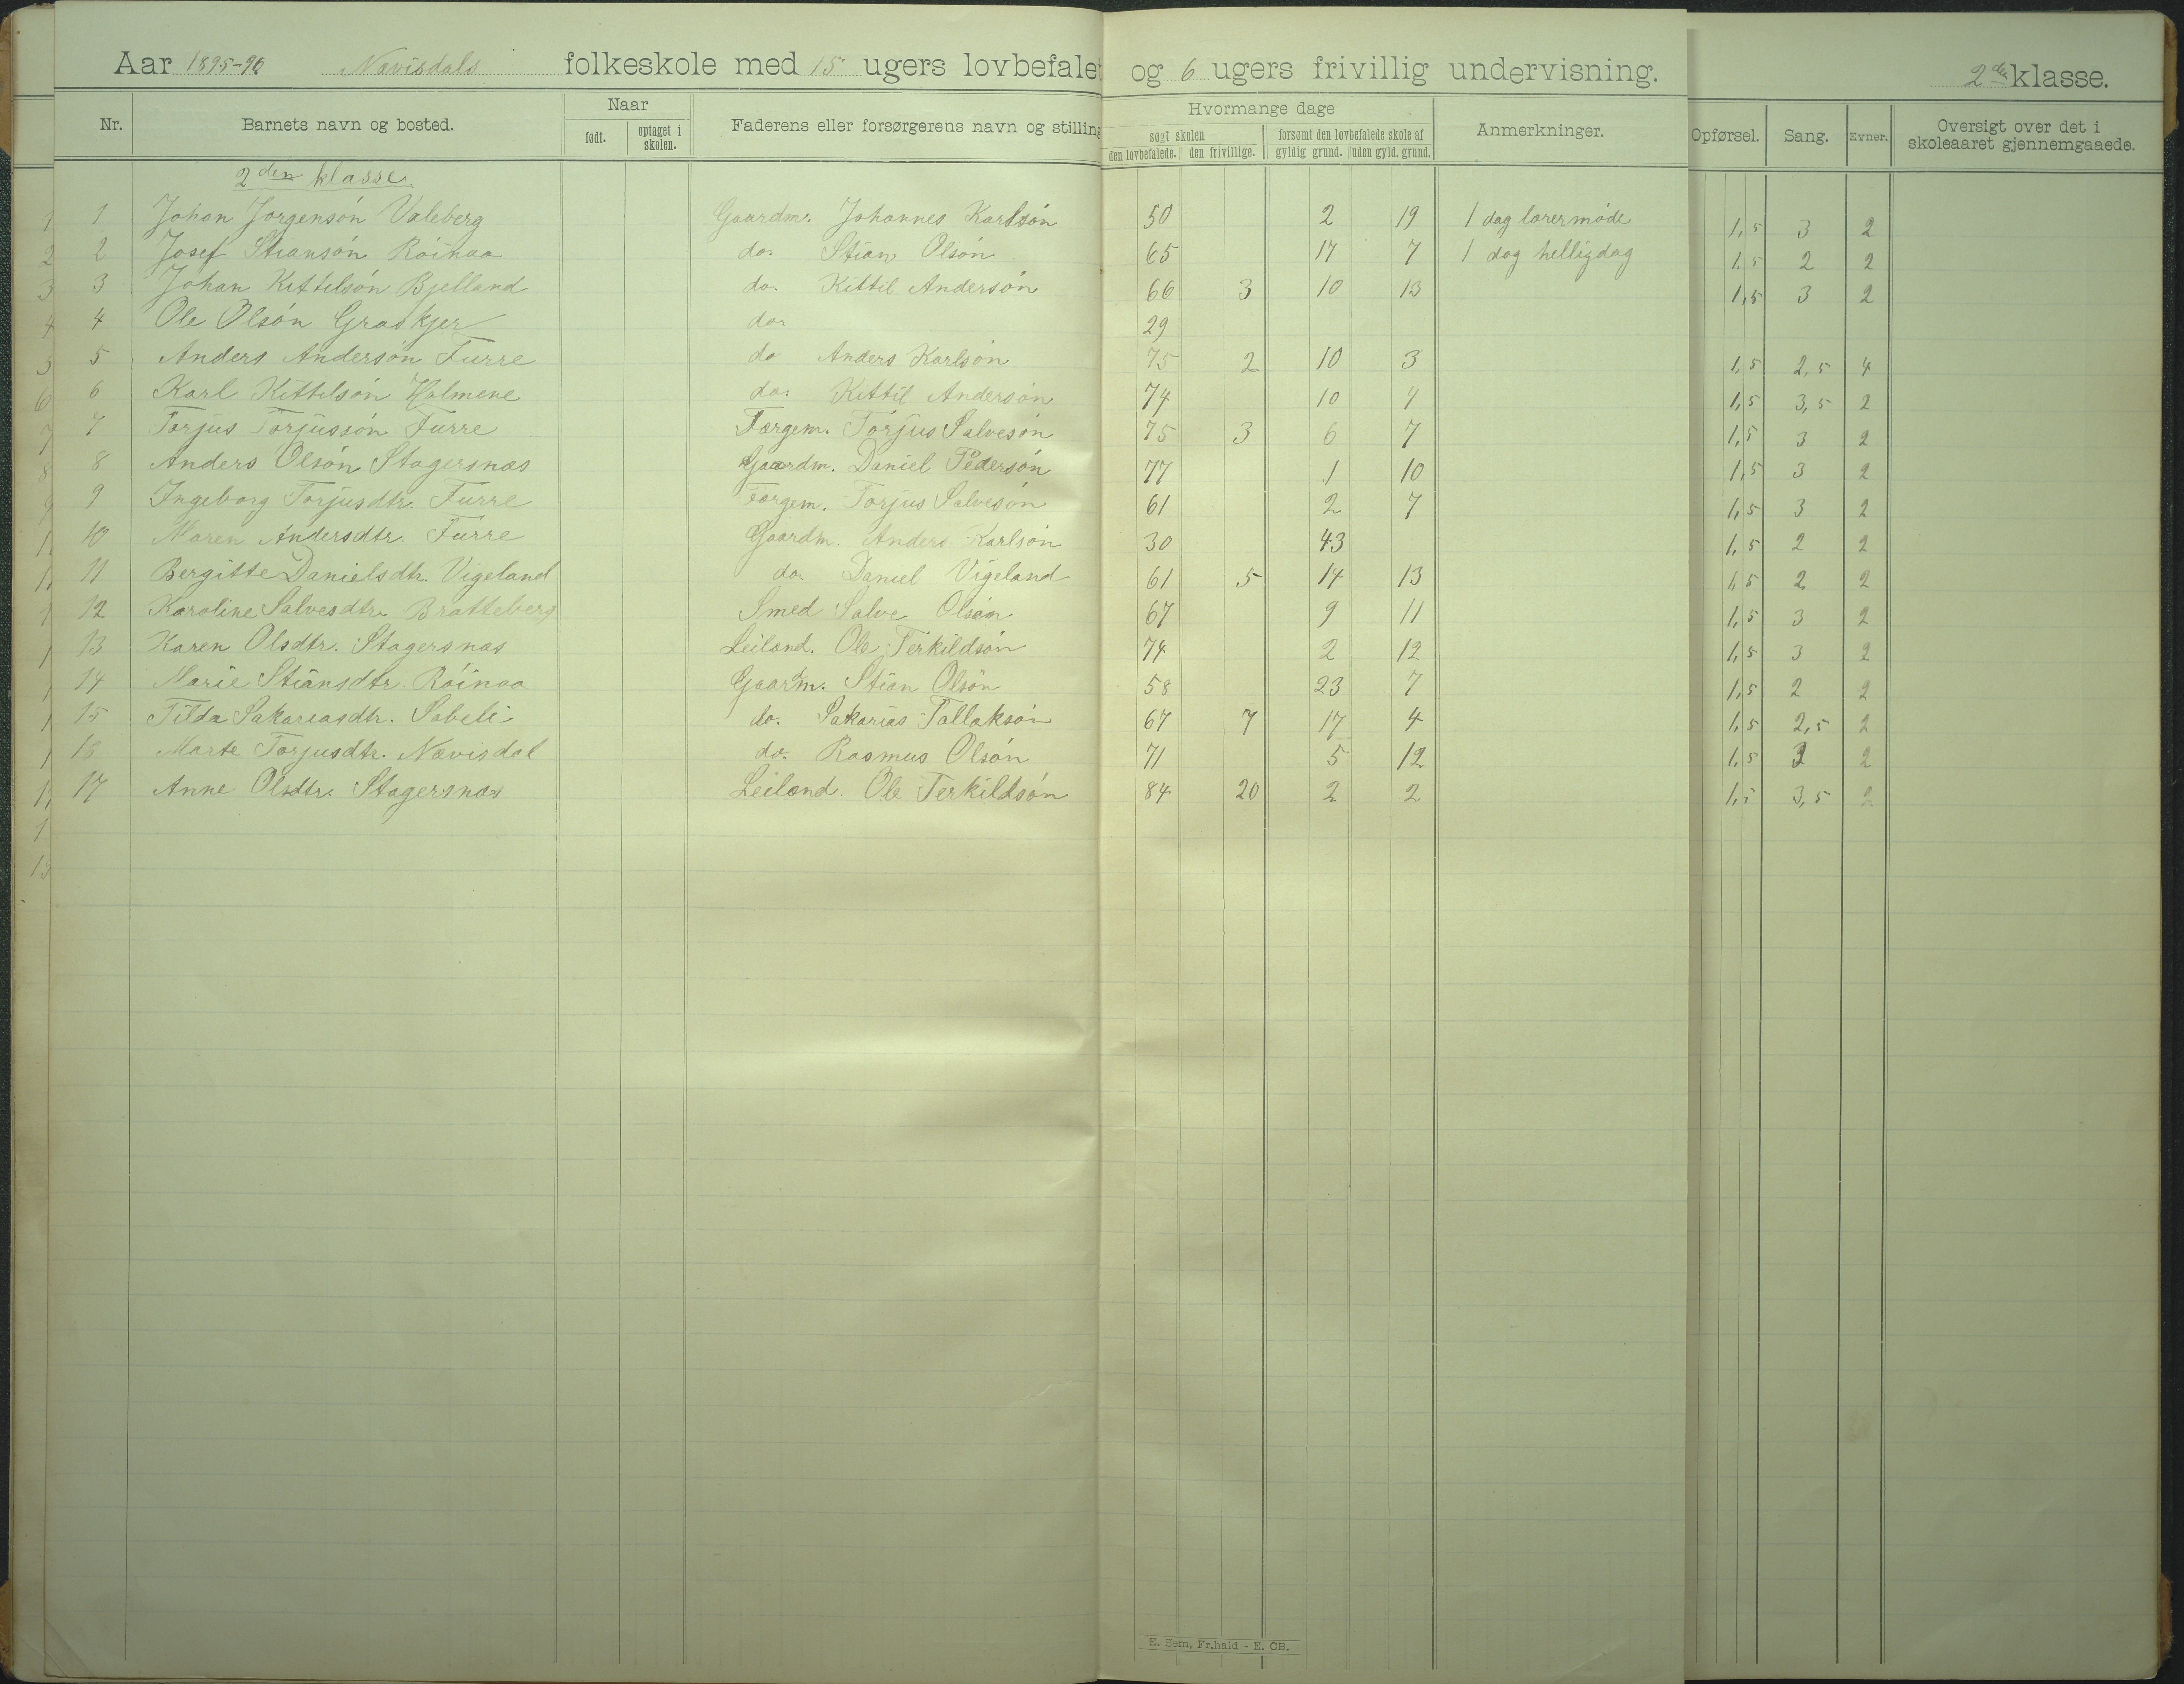 Aar 1895-96 Navisdals folkeskole med 15 ugers lovbefalet og 6 ugers frivillig undervisning. 2den klasse.
Nr. Barnets navn og bosted. Naar født. optaget i skolen. Faderens eller forsørgerens navn og stilling Hvormange dage søgt skolen den lovbefalede. den frivillige. forsømt den lovbefalede skole af gyldig grund. uden gyld. grund. Anmerkninger. Opførsel. Sang. Evner. Oversigt over det i skoleaaret gjennemgaaede.
2den klasse.
1 Johan Jorgensón Valeberg Gaardmr. Johannes Karlsón 50 2 19 1 dag lærermóde 1,5 3 2
2 Josef Stiansón Róinaa do. Stian Olsón 65 17 7 1 dag helligdag 1,5 2 2
3 Johan Kittilsón Bjelland do. Kittil Andersón 66 3 10 13 1,5 3 2
4 Ole Olsón Graskjer do. 29
5 Anders Andersón Furre do Anders Karlsón 75 2 10 3 1,5 2,5 4
6 Karl Kittilsón Holmene do. Kittil Andersón 74 10 4 1,5 3,5 2
7 Torjus Torjussón Furre Færgem. Torjus Salvesón 75 3 6 7 1,5 3 2
8 Anders Olsón Stagersnæs Gaardm. Daniel Pedersón 77 1 10 1,5 3 2
9 Ingeborg Torjusdtr. Furre Færgem. Torjus Salvesón 61 2 7 1,5 3 2
10 Maren Andersdtr. Furre Gaardm. Anders Karlsón 30 43 1,5 2 2
11 Bergitte Danielsdtr. Vigeland do. Daniel Vigeland 61 5 14 13 1,5 2 2
12 Karoline Salvesdtr. Bratteberg Smed Salve Olsón 67 9 11 1,5 3 2
13 Karen Olsdtr. Stagersnæs Leilænd. Ole Terkildsón 74 2 12 1,5 3 2
14 Marie Stiansdtr. Róinaa Gaarm. Stian Olsón 58 23 7 1,5 2 2
15 Tilda Sakariasdtr. Sabeli do. Sakarias Tallaksón 67 7 17 4 1,5 2,5 2
16 Marte Torjusdtr. Nævisdal do. Rasmus Olsón 71 5 12 1,5 3 2
17 Anne Olsdtr. Stagersnæs Leilænd. Ole Terkildsón 84 20 2 2 1,5 3,5 2
E. Sem, Fr.hald - E. CB.